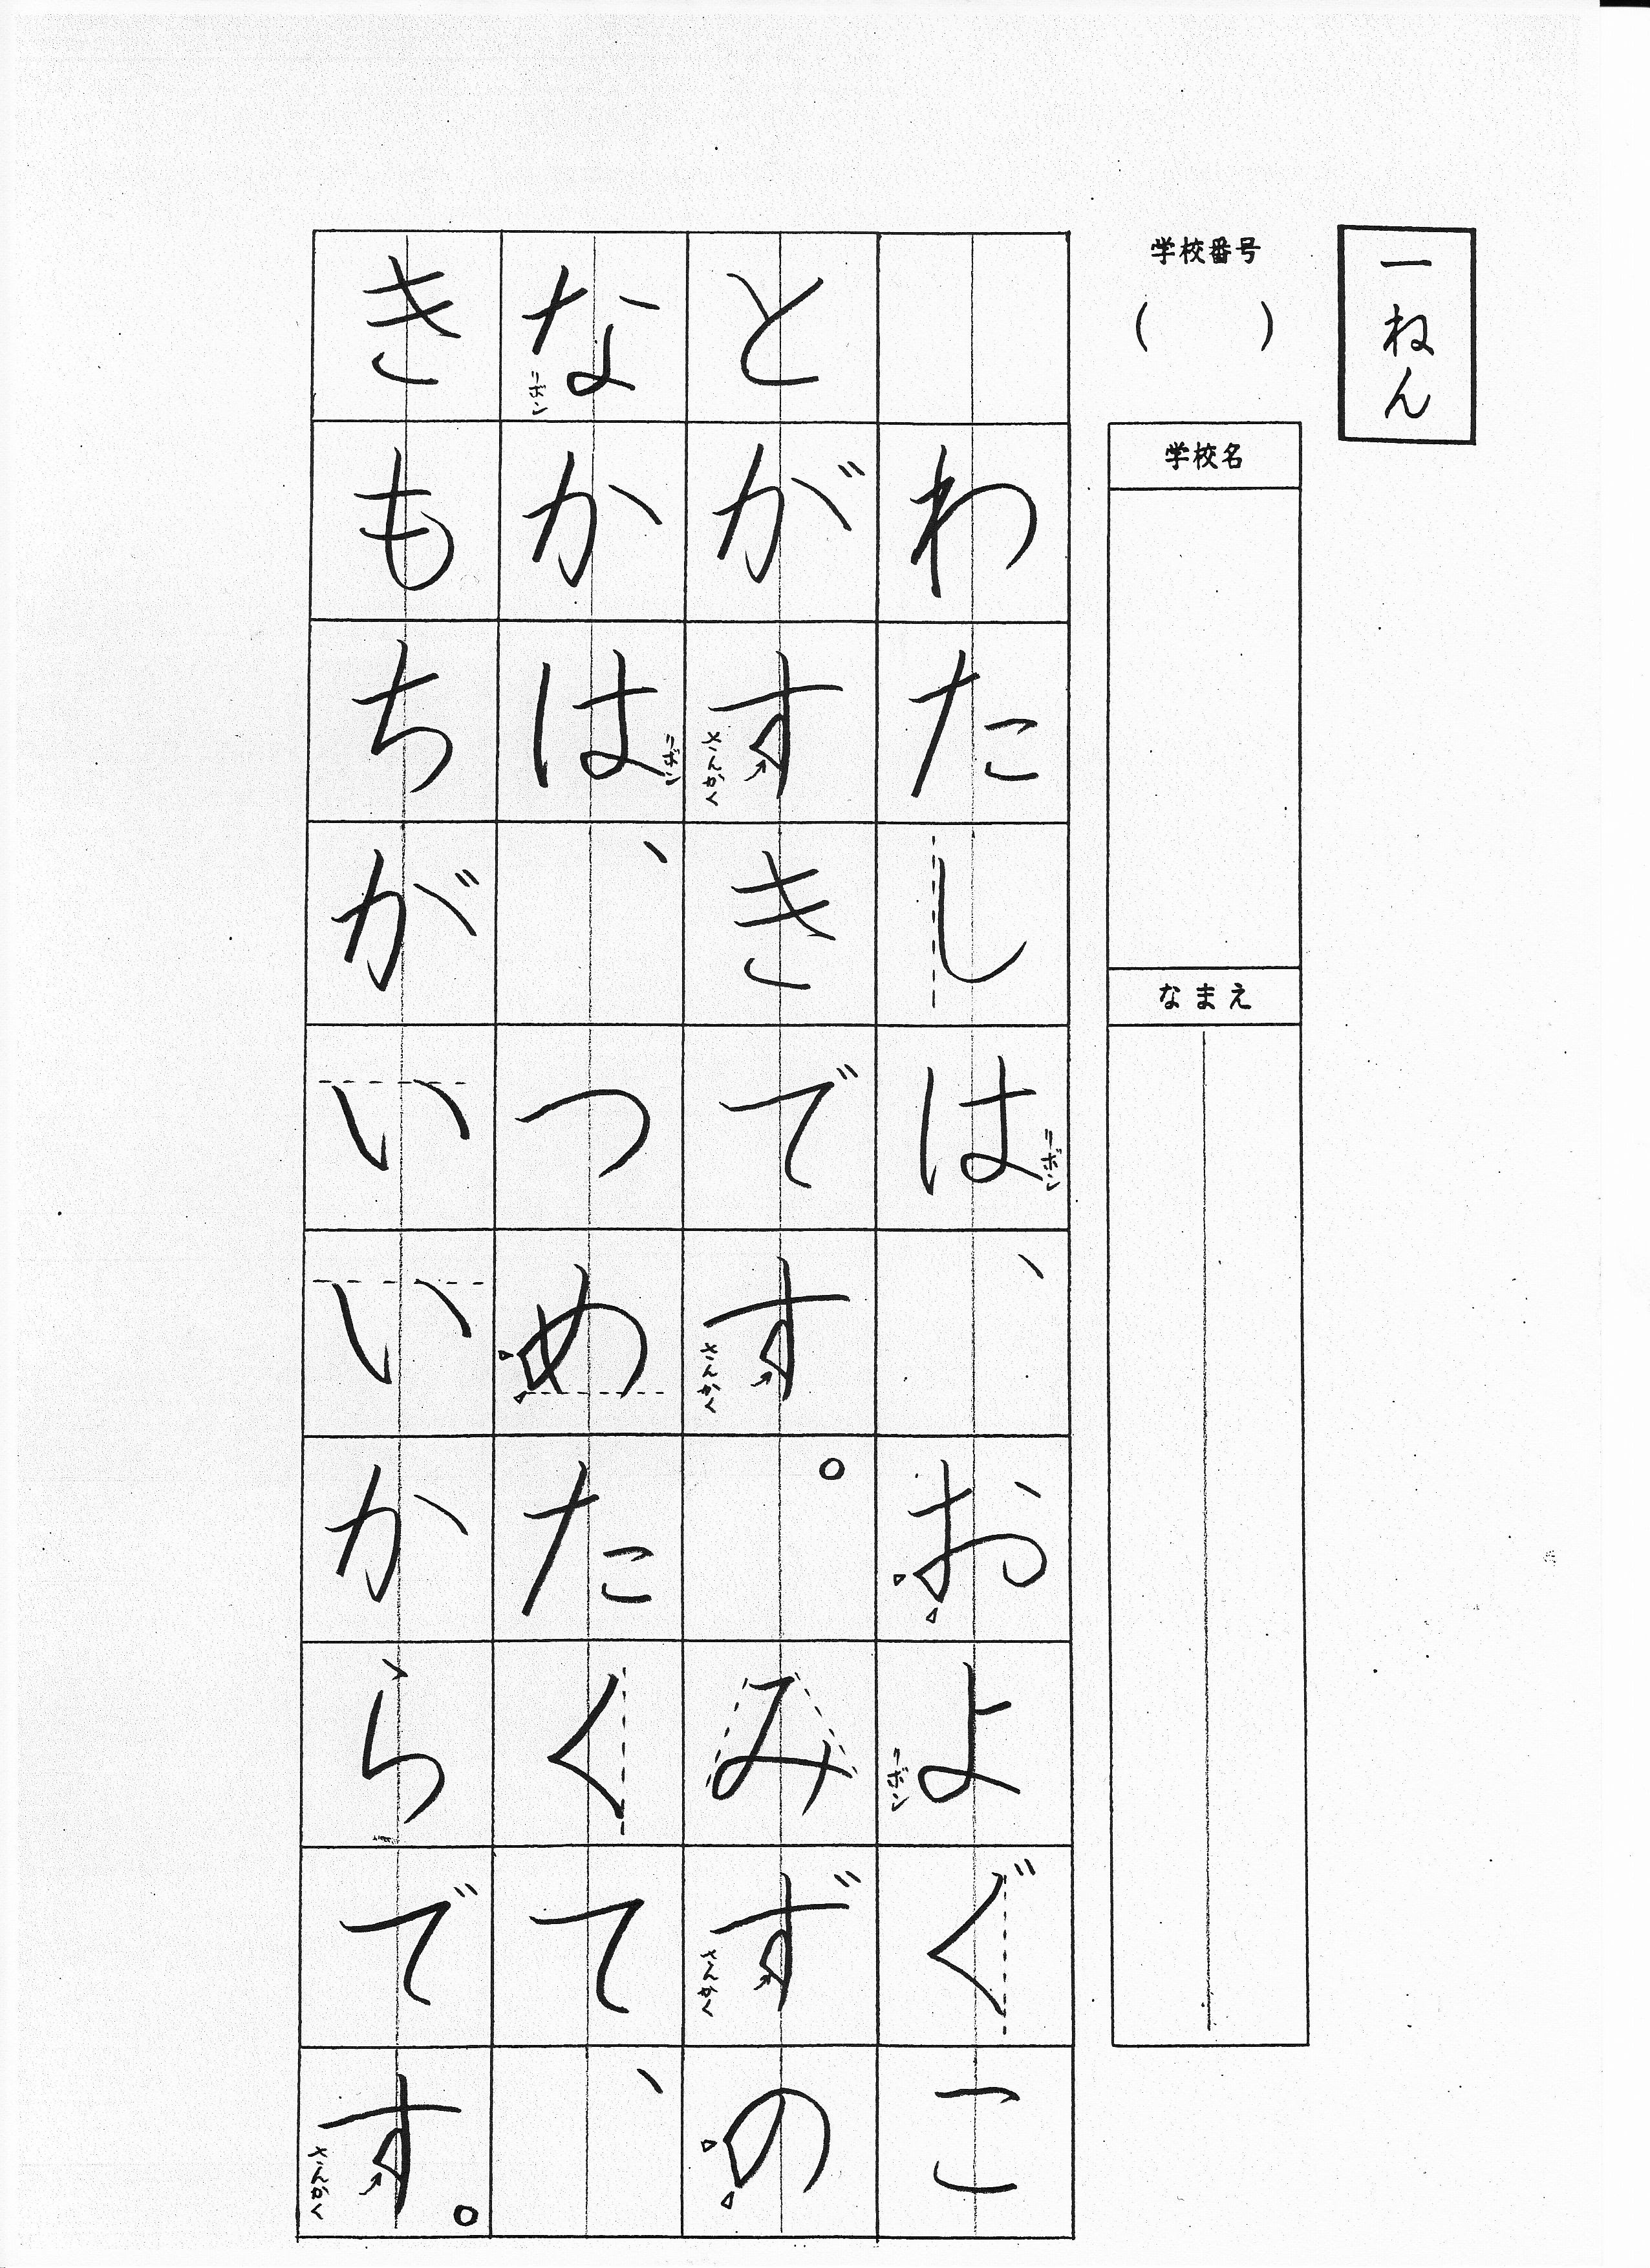 一ねん
学校番号
(　　)
学校名
なまえ
わたしは、およぐこ
とがすきです。みずの
なかは、つめたくて、
きもちがいいからです。
リボン
リボン
さんかく
さんかく
さんかく
リボン
リボン
さんかく